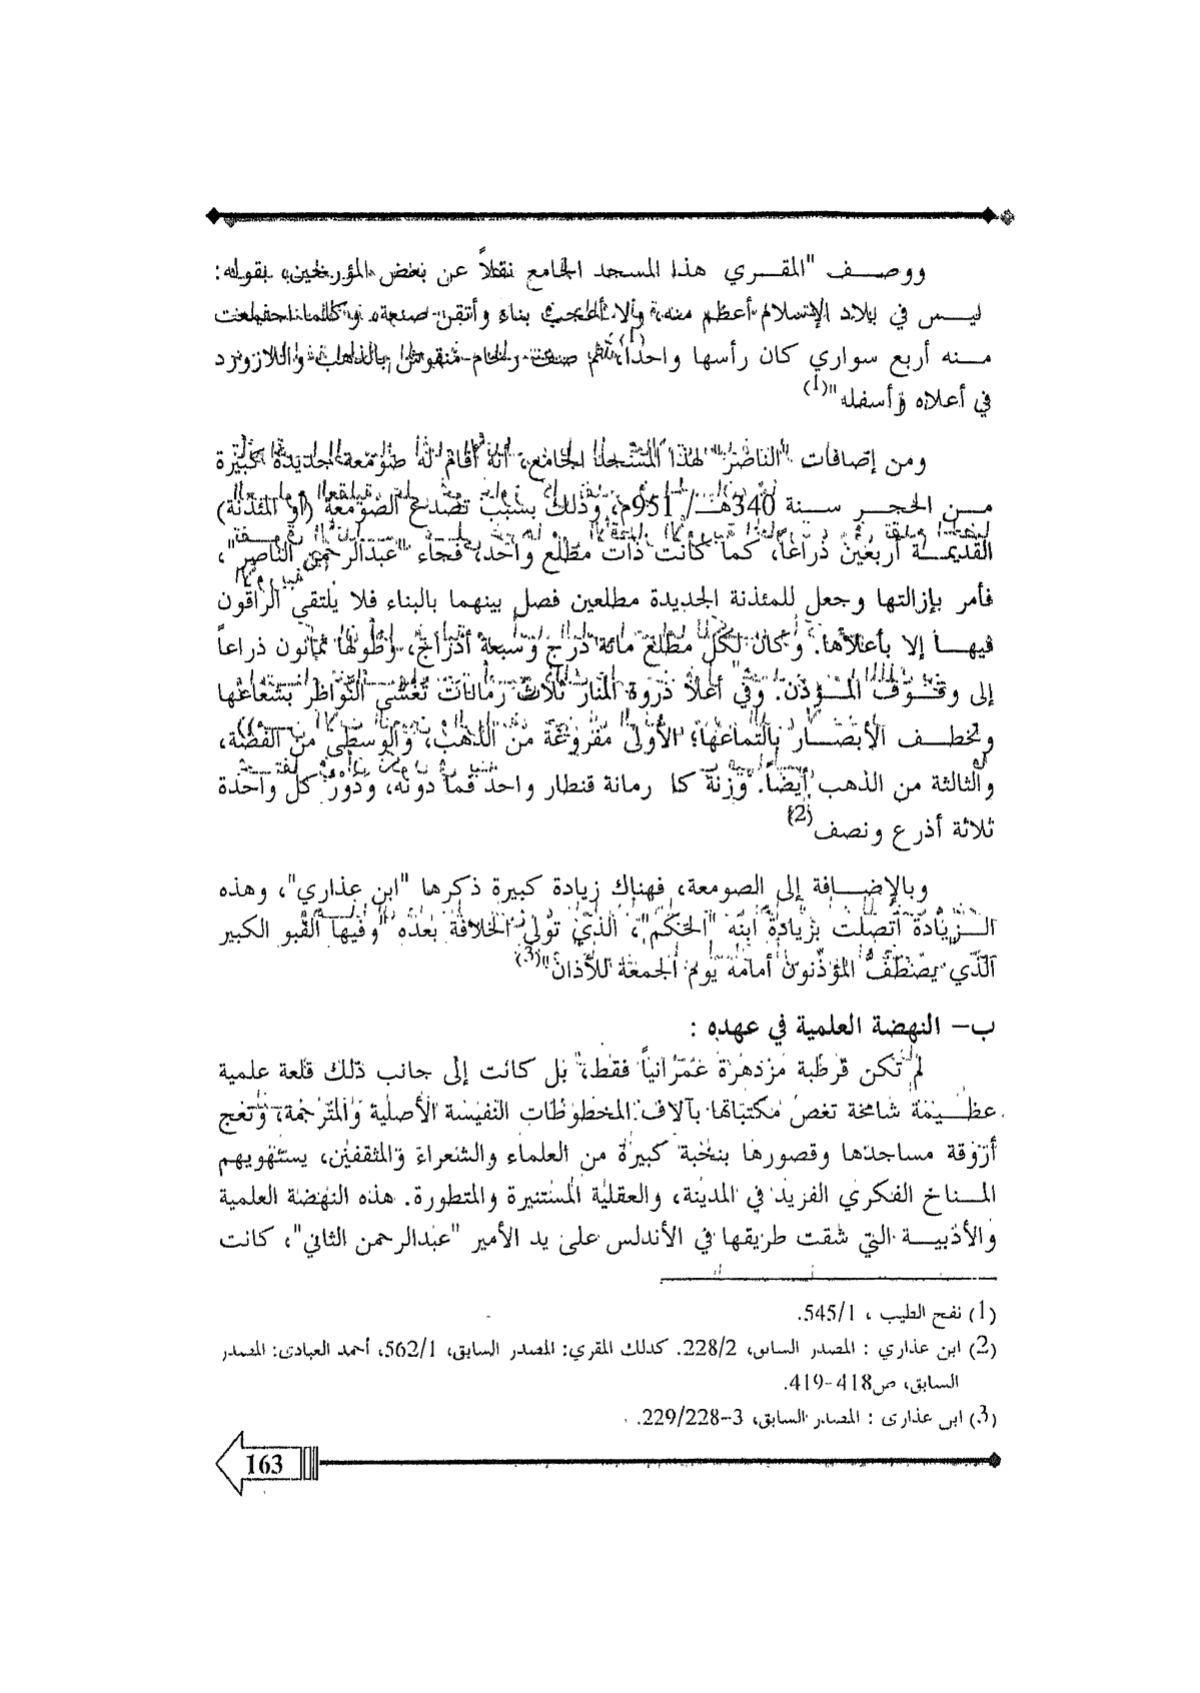 ووصف "المقري هذا المسجد الجامع نقلاً عن بعض المؤرخين، بقوله:
ليس في بلاد الإسلام أعظم منه، ولا أعجب بناء وأتقن صنعة، وكلما اجتمعت
منه أربع سواري كان رأسها واحداً، ثم صف رخام منقوش بالذهب واللازورد
في أعلاه وأسفله"(1)
ومن إضافات "الناصر" لهذا المسجد الجامع، أنه أقام له صومعة جديدة كبيرة
من الحجر سنة 340هـ/ 951م، وذلك بسبب تصدع الصومعة (أو المئذنة)
القديمة أربعين ذراعاً، كما كانت ذات مطلع واحد، فجاء "عبدالرحمن الناصر"،
فأمر بإزالتها وجعل للمئذنة الجديدة مطلعين فصل بينهما بالبناء فلا يلتقي الراقون
فيها إلا بأعلاها. وكان لكل مطلع مائة درج وسبعة أدراج، وطولها ثمانون ذراعاً
إلى وقوف المؤذن. وفي أعلا ذروة المنار ثلاث رمانات تغشى النواظر بشعاعها
وتخطف الأبصار بالتماعها؛ الأولى مفروغة من الذهب، والوسطى من الفضة،
والثالثة من الذهب أيضاً. وزنة كل رمانة قنطار واحد فما دونه، ودور كل واحدة
ثلاثة أذرع ونصف(2)
وبالإضافة إلى الصومعة، فهناك زيادة كبيرة ذكرها "ابن عذاري"، وهذه
الزيادة اتصلت بزيادة ابنه "الحكم"، الذي تولى الخلافة بعده "وفيها القبو الكبير
الذي يصطف المؤذنون أمامه يوم الجمعة للأذان"(3)
ب– النهضة العلمية في عهده :
لم تكن قرطبة مزدهرة عمرانياً فقط، بل كانت إلى جانب ذلك قلعة علمية
عظيمة شامخة تغص مكتباتها بآلاف المخطوطات النفيسة الأصلية والمترجمة، وتعج
أروقة مساجدها وقصورها بنخبة كبيرة من العلماء والشعراء والمثقفين، يستهويهم
المناخ الفكري الفريد في المدينة، والعقلية المستنيرة والمتطورة. هذه النهضة العلمية
والأدبية التي شقت طريقها في الأندلس على يد الأمير "عبدالرحمن الثاني"، كانت
(1) نفح الطيب ، 545/1.
(2) ابن عذاري : المصدر السابق، 228/2. كذلك المقري: المصدر السابق، 562/1، أحمد العبادي: المصدر
السابق، ص418-419.
(3) ابن عذارى : المصدر السابق، 3–229/228.
163